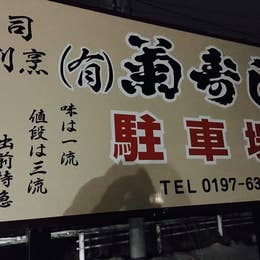 司
割烹
(有)萬寿
味は一流
値段は三流
出前特急
駐車場
TEL 0197-63